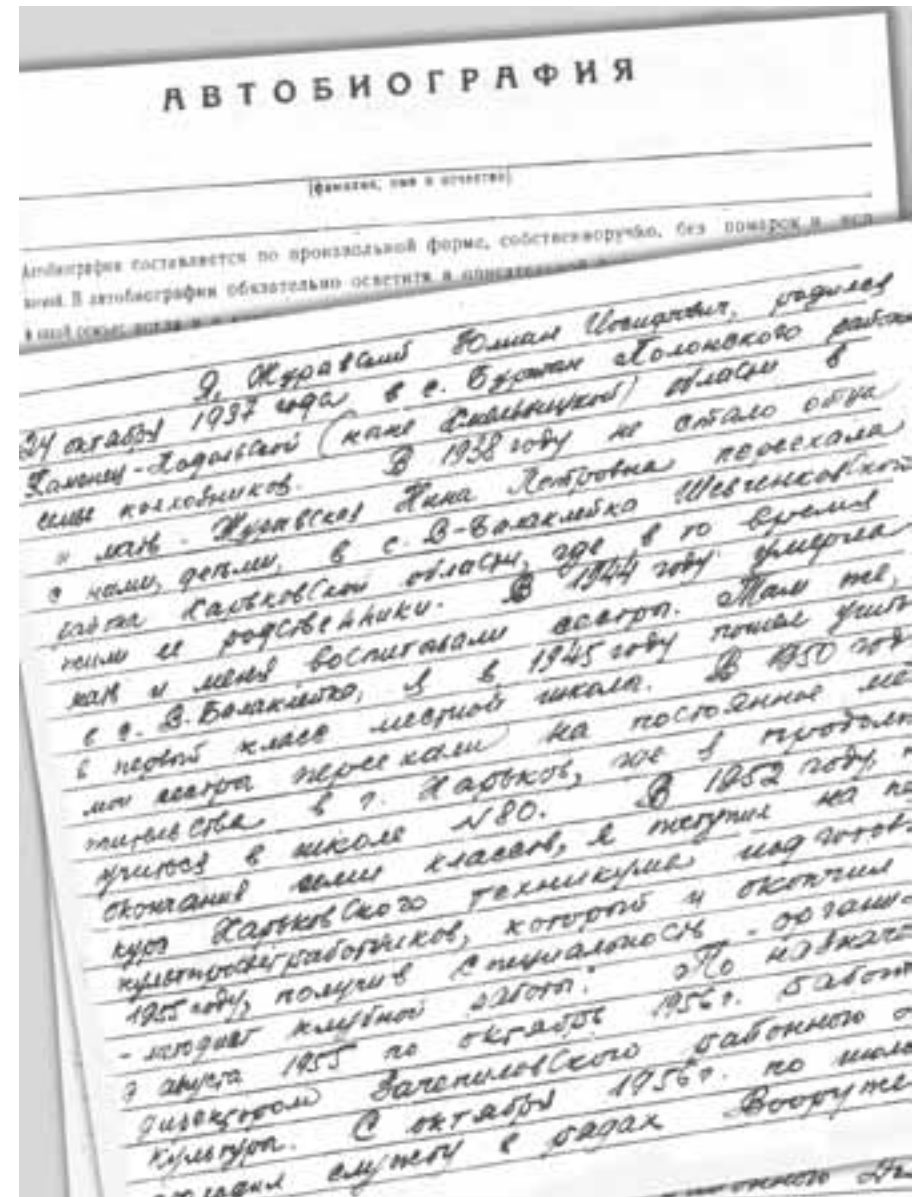 АВТОБИОГРАФИЯ
(фамилия, имя и отчество)
Автобиография составляется по произвольной форме, собственноручно, без помарок и
В автобиографии обязательно осветить в описательной
Я, Журавский Юлиан Иосифович, родился
24 октября 1937 года в с. Буртын Полонского района
Каменец-Подольской (ныне Хмельницкой) области в
семье колхозников. В 1938 году не стало отца
и мать - Журавская Нина Петровна переехала
с нами, детьми, в с. В-Балаклейка Шевченковского
района Харьковской области, где в то время
жили ее родственники. В 1944 году умерла
мать и меня воспитывали сестры. Там же,
в с. В. Балаклейка, я в 1945 году пошел учить
в первый класс местной школы. В 1950 год
мои сестры переехали на постоянное ме
жительства в г. Харьков, где я продолж
учиться в школе №80. В 1952 году, п
окончания семи классов, я поступил на пе
курс Харьковского техникума подготов
культпросветработников, который и окончил
1955 году, получив специальность - органи
- методист клубной работы. По назначе
с августа 1955 по октябрь 1956г. работ
директором Зачепиловского районного
культуры. С октября 1956г. по
службу в рядах Вооруже